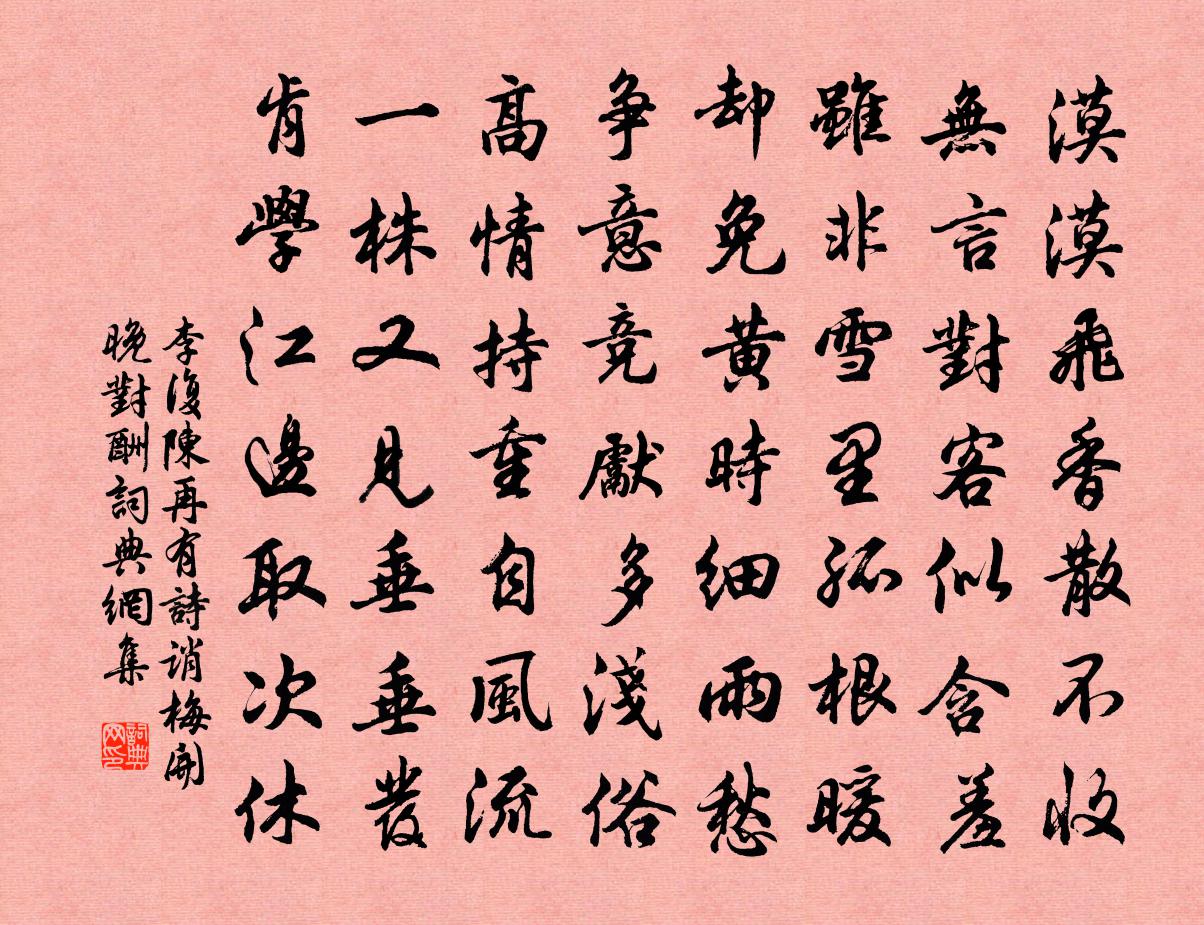 漠漠飛香散不收
無言對客似含羞
雖非雪里孤根暖
却免黃時細雨愁
争意競獻多淺俗
高情持重自風流
一株又見垂垂發
肯學江邊取次休
李復陳再有詩誚梅開
晚對酬詞典網集
詞典网印